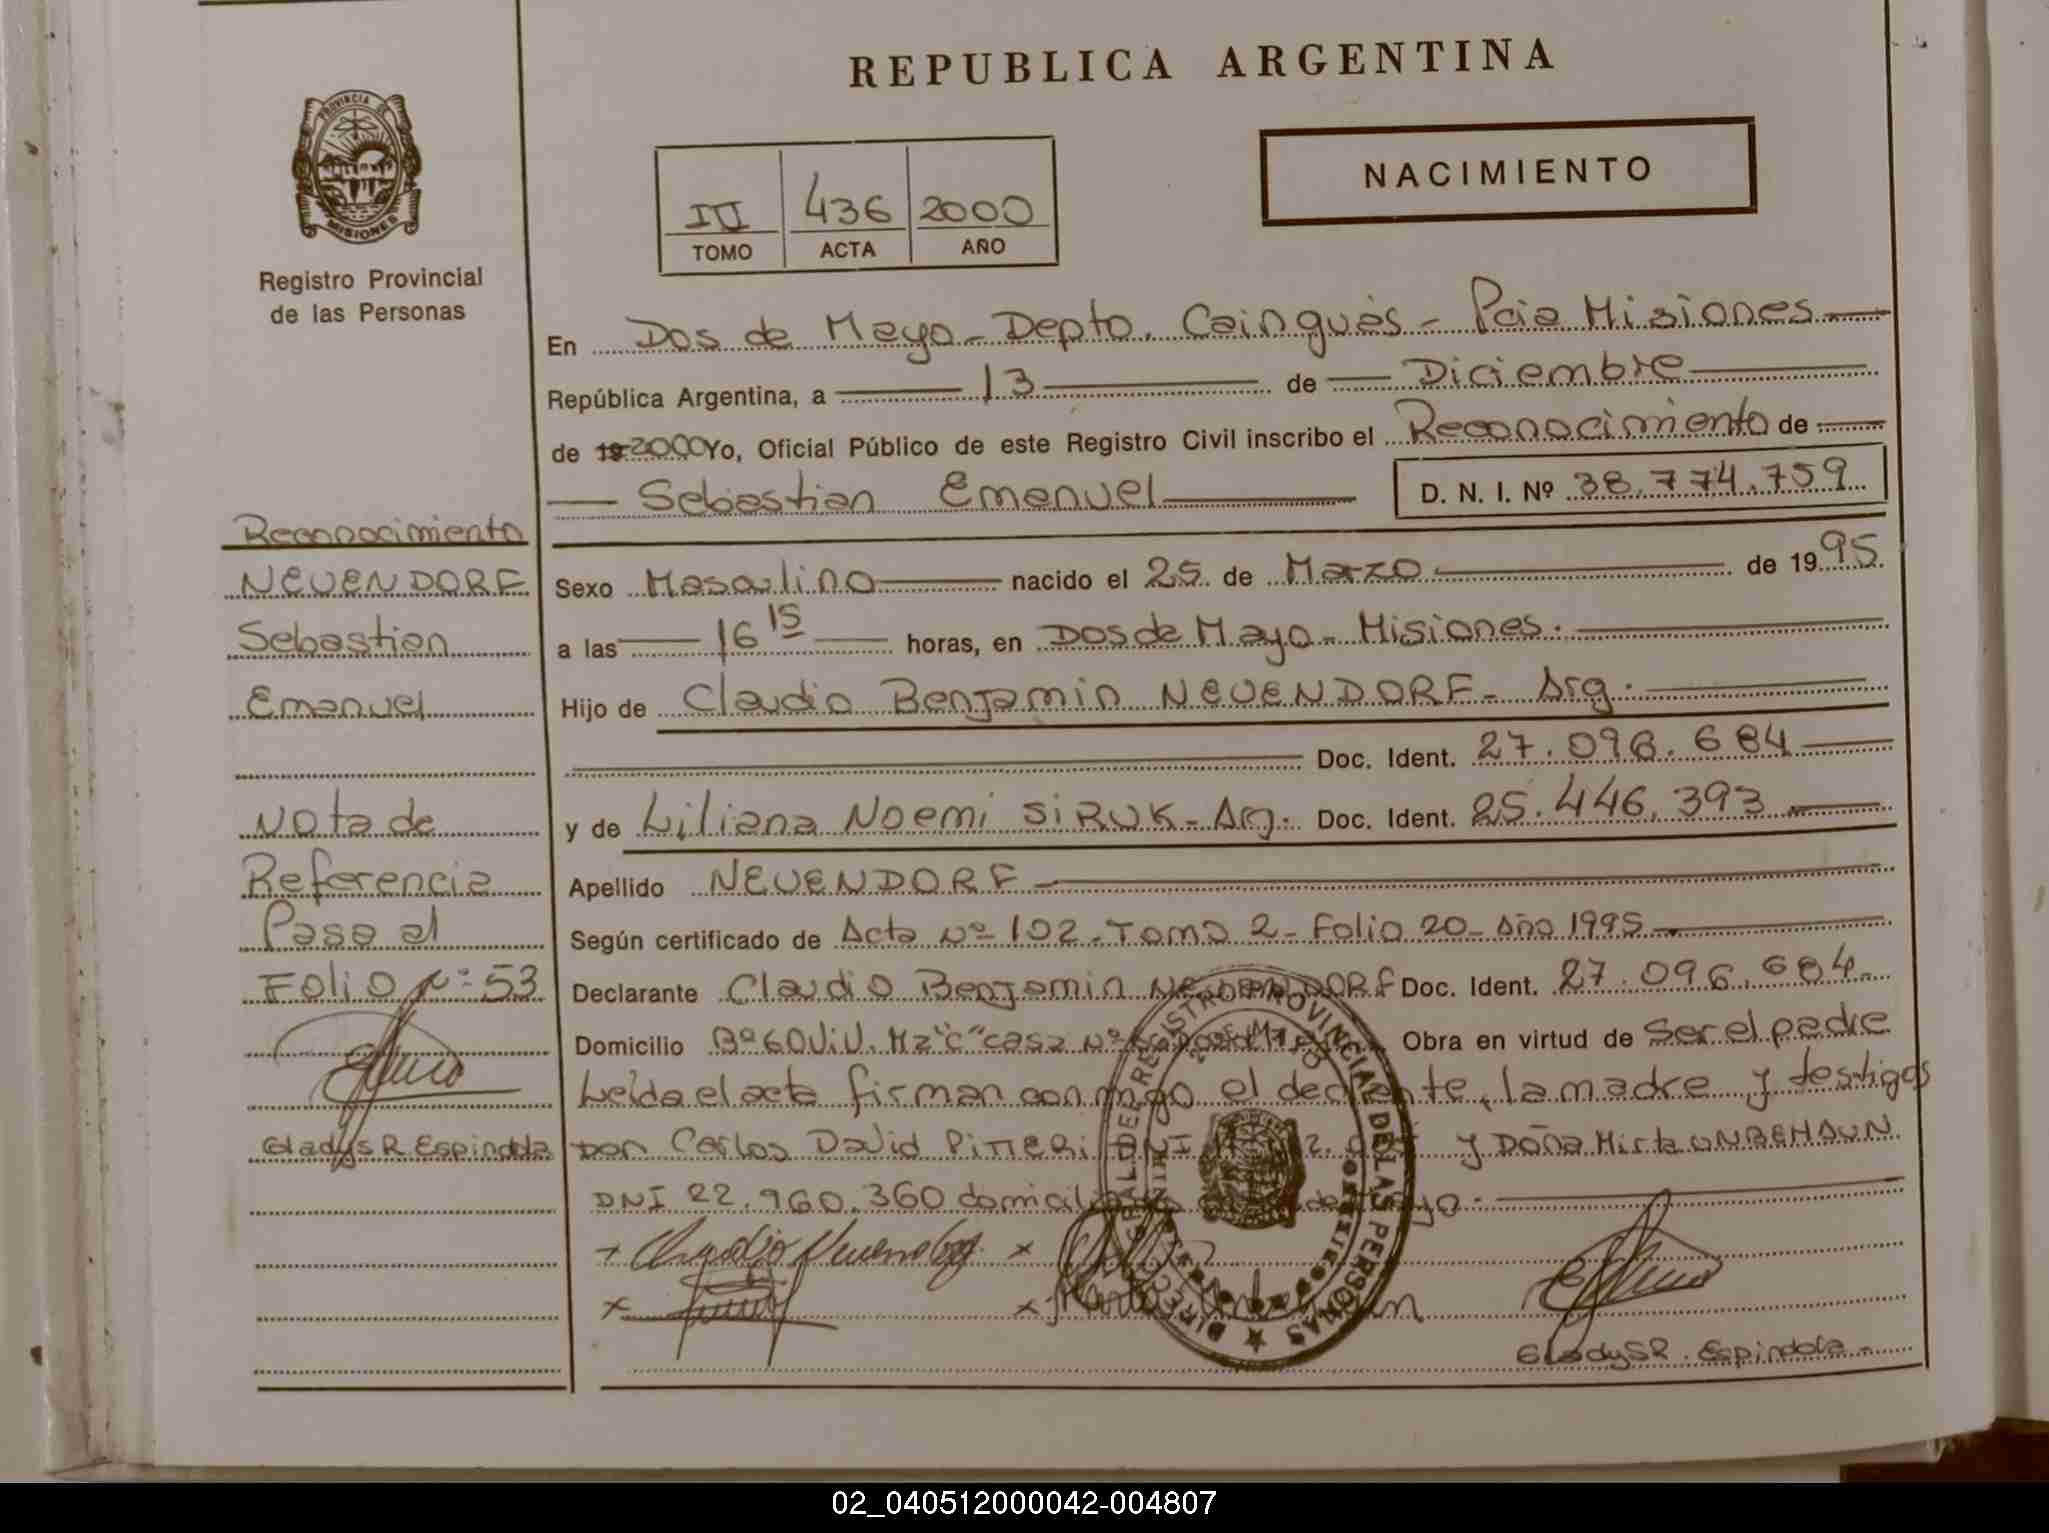 REPUBLICA ARGENTINA
PROVINCIA DE
MISIONES
Registro Provincial
de las Personas
NACIMIENTO
436 2000
TOMO ACTA AÑO
En Dos de Mayo - Depto. Cainguás - Pcia Misiones
República Argentina, a 13 de Diciembre
de 19 2000 Yo, Oficial Público de este Registro Civil inscribo el Reconocimiento de
Sebastian Emanuel D. N. I. Nº 38.774.759
Reconocimiento
NEUENDORF
Sebastian
Emanuel
Nota de
Referencia
Pasa al
Folio Nº 53
Gladys R Espindola
Sexo Masculino nacido el 25 de Marzo de 1995
a las 16 15 horas, en Dos de Mayo - Misiones.
Hijo de Claudio Benjamin NEUENDORF - Arg.
Doc. Ident. 27.096.684
y de Liliana Noemi SIRUK - Arg. Doc. Ident. 25.446.393
Apellido NEUENDORF
Según certificado de Acta Nº 102 - Tomo 2 - Folio 20 - Año 1995
Declarante Claudio Benjamin NEUENDORF Doc. Ident. 27.096.684
Domicilio Bº 60 Viv. Mz "C" casa Nº Obra en virtud de Ser el padre
Leída el acta firman conmigo el declarante, la madre y testigos
Don Carlos David PITTERI DNI y Doña Mirta UNBEHAUN
DNI 22.960.360 domiciliados de Mayo.
Gladys R. Espindola
DIRECCION GRAL. DEL REGISTRO PROVINCIAL DE LAS PERSONAS
02_040512000042-004807